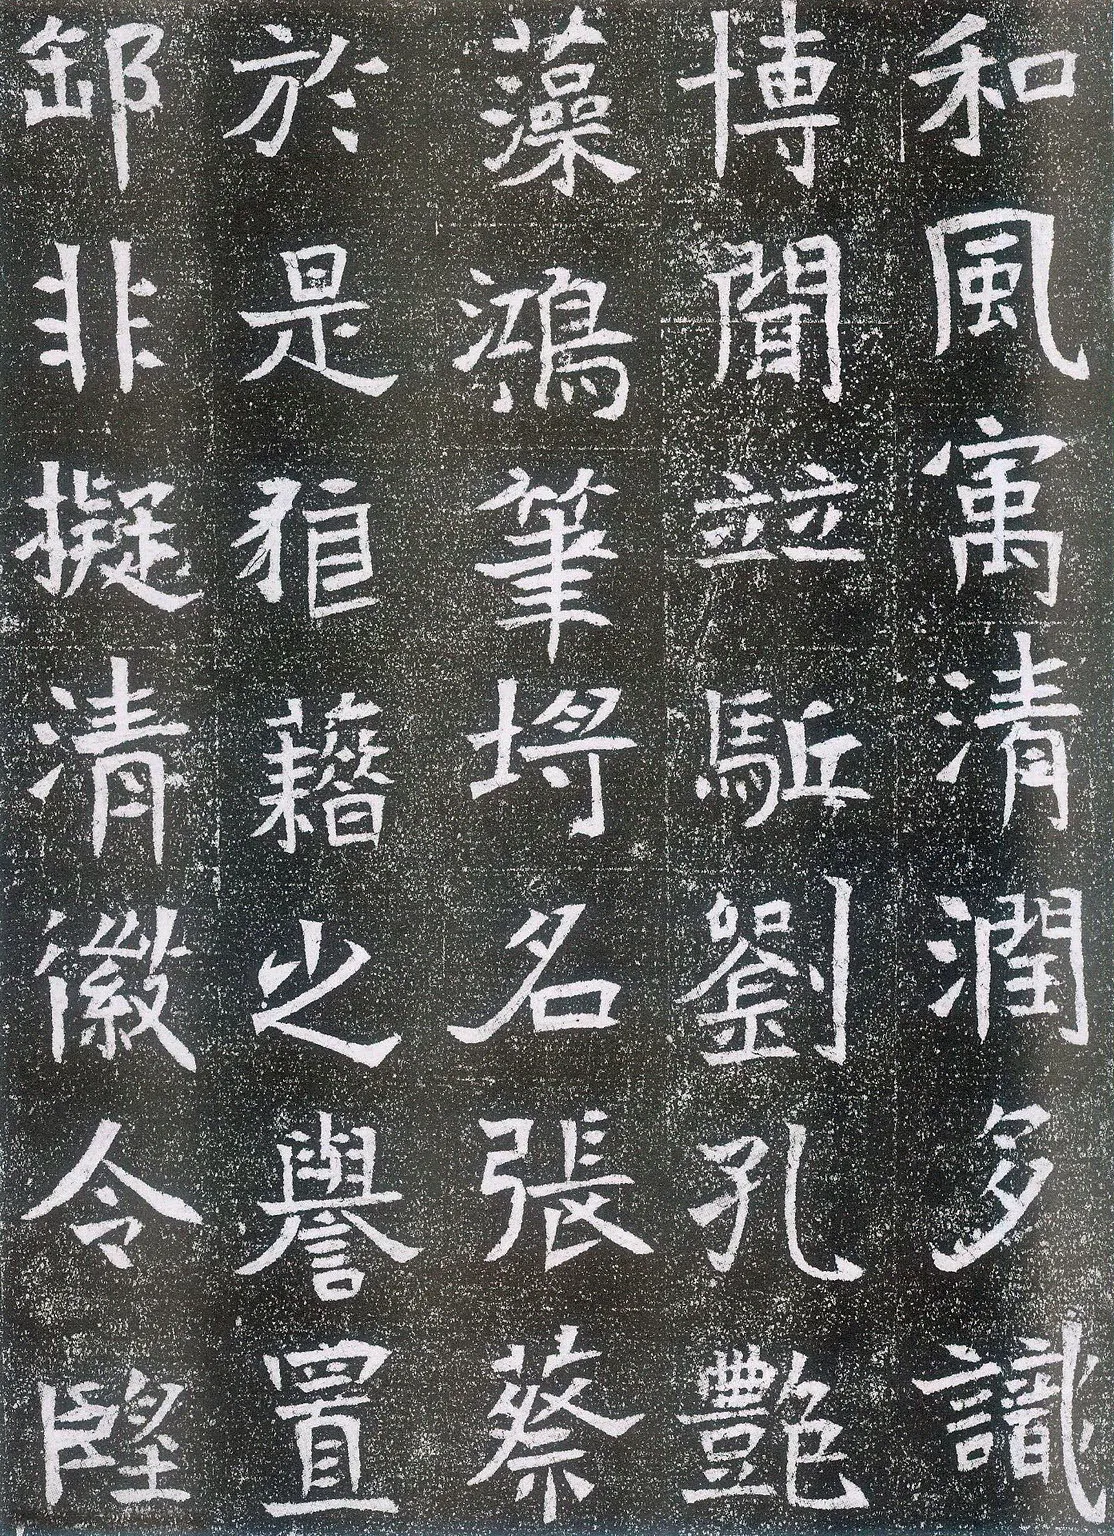 和風寓清潤多識
博聞竝駈劉孔艷
藻鴻筆埒名張蔡
於是藉之譽置
郵非擬清徽令望